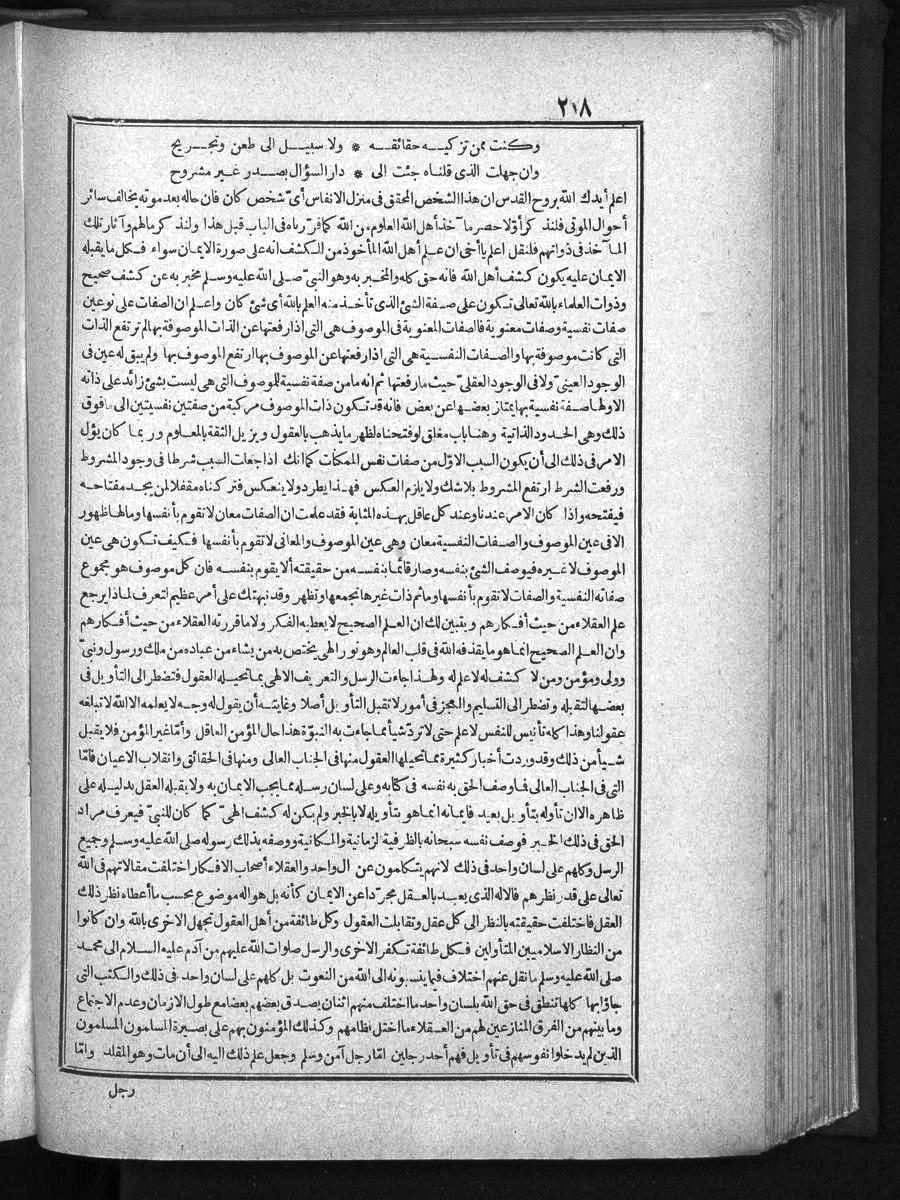 ٢١٨
وكنت ممن تزكيه حقائقه * ولا سبيل الى طعن وتجريح
وان جهلت الذى قلناه جئت الى * دار السؤال بصدر غير مشروح
اعلم أيدك الله بروح القدس ان هذا الشخص المحقق فى منزل الانفاس أىّ شخص كان فان حاله بعد موته يخالف سائر
أحوال الموتى فلنذكر أوّلا حصر مآخذ أهل الله العلوم من الله كما قرّرناه فى الباب قبل هذا ولنذكر مالهم وآثار تلك
المآخذ فى ذواتهم فلنقل اعلم يا أخى ان علم أهل الله المأخوذ من الكشف انه على صورة الايمان سواء فكل ما يقبله
الايمان عليه يكون كشف أهل الله فانه حق كله والمخبر به وهو النبىّ صلى الله عليه وسلم مخبر به عن كشف صحيح
وذوات العلماء بالله تعالى تكون على صفة الشئ الذى تأخذ منه العلم بالله أى شئ كان واعلم ان الصفات على نوعين
صفات نفسية وصفات معنوية فالصفات المعنوية فى الموصوف هى التى اذا رفعتها عن الذات الموصوفة بها لم ترتفع الذات
التى كانت موصوفة بها والصفات النفسية هى التى اذا رفعتها عن الموصوف بها ارتفع الموصوف بها ولم يبق له عين فى
الوجود العينىّ ولا فى الوجود العقلىّ حيث ما رفعتها ثم انه ما من صفة نفسية للموصوف التى هى ليست بشئ زائد على ذاته
الا ولها صفة نفسية بها يمتاز بعضها عن بعض فانه قد تكون ذات الموصوف مركبة من صفتين نفسيتين الى ما فوق
ذلك وهى الحدود الذاتية وهنا باب مغلق لو فتحناه لظهر ما يذهب بالعقول ويزيل الثقة بالمعلوم وربما كان يؤل
الامر فى ذلك الى أن يكون السبب الاوّل من صفات نفس الممكنات كما انك اذا جعلت السبب شرطا فى وجود المشروط
ورفعت الشرط ارتفع المشروط بلا شك ولا يلزم العكس فهذا يطرد ولا ينعكس فتركناه مقفلا لمن يجد مفتاحه
فيفتحه واذا كان الامر عندنا وعند كل عاقل بهذه المثابة فقد علمت ان الصفات معان لا تقوم بأنفسها وما لها ظهور
الا فى عين الموصوف والصفات النفسية معان وهى عين الموصوف والمعانى لا تقوم بأنفسها فكيف تكون هى عين
الموصوف لا غيره فيوصف الشئ بنفسه وصار قائما بنفسه من حقيقته ألا يقوم بنفسه فان كل موصوف هو مجموع
صفاته النفسية والصفات لا تقوم بأنفسها وما ثم ذات غيرها تجمعها وتظهر وقد نبهتك على أمر عظيم لتعرف لماذا يرجع
علم العقلاء من حيث أفكارهم ويتبين لك ان العلم الصحيح لا يعطيه الفكر ولا ما قررته العقلاء من حيث أفكارهم
وان العلم الصحيح انما هو ما يقذفه الله فى قلب العالم وهو نور الهى يختص به من يشاء من عباده من ملك ورسول ونبىّ
وولى ومؤمن ومن لا كشف له لا علم له ولهذا جاءت الرسل والتعريف الالهى بما تحيله العقول فتضطر الى التأويل فى
بعضها لتقبله وتضطر الى التسليم والعجز فى أمور لا تقبل التأويل أصلا وغايته أن يقول له وجه لا يعلمه الا الله لا تبلغه
عقولنا وهذا كله تأنيس للنفس لا علم حتى لا تردّ شيأ مما جاءت به النبوّة هذا حال المؤمن العاقل وأمّا غير المؤمن فلا يقبل
شيأ من ذلك وقد وردت أخبار كثيرة مما تحيلها العقول منها فى الجناب العالى ومنها فى الحقائق وانقلاب الاعيان فامّا
التى فى الجناب العالى فما وصف الحق به نفسه فى كتابه وعلى لسان رسله مما يجب الايمان به ولا يقبله العقل بدليله على
ظاهره الا ان تأوله بتأويل بعيد فايمانه انما هو بتأويله لا بالخبر ولم يكن له كشف الهىّ كما كان للنبىّ فيعرف مراد
الحق فى ذلك الخبر فوصف نفسه سبحانه بالظرفية الزمانية والمكانية ووصفه بذلك رسوله صلى الله عليه وسلم وجميع
الرسل وكلهم على لسان واحد فى ذلك لانهم يتكلمون عن ال واحد والعقلاء أصحاب الافكار اختلفت مقالاتهم فى الله
تعالى على قدر نظرهم فالاله الذى يعبد بالعقل مجرّدا عن الايمان كأنه بل هو اله موضوع بحسب ما أعطاه نظر ذلك
العقل فاختلفت حقيقته بالنظر الى كل عقل وتقابلت العقول وكل طائفة من أهل العقول تجهل الاخرى بالله وان كانوا
من النظار الاسلاميين المتأولين فكل طائفة تكفر الاخرى والرسل صلوات الله عليهم من آدم عليه السلام الى محمد
صلى الله عليه وسلم ما نقل عنهم اختلاف فيما ينسبونه الى الله من النعوت بل كلهم على لسان واحد فى ذلك والكتب التى
جاؤا بها كلها تنطق فى حق الله بلسان واحد ما اختلف منهم اثنان يصدق بعضهم بعضا مع طول الازمان وعدم الاجتماع
وما بينهم من الفرق المنازعين لهم من العقلاء ما اختل نظامهم وكذلك المؤمنون بهم على بصيرة المسلمون المسلمون
الذين لم يدخلوا نفوسهم فى تأويل فهم أحد رجلين امّا رجل آمن وسلم وجعل علم ذلك اليه الى أن مات وهو المقلد وامّا
رجل